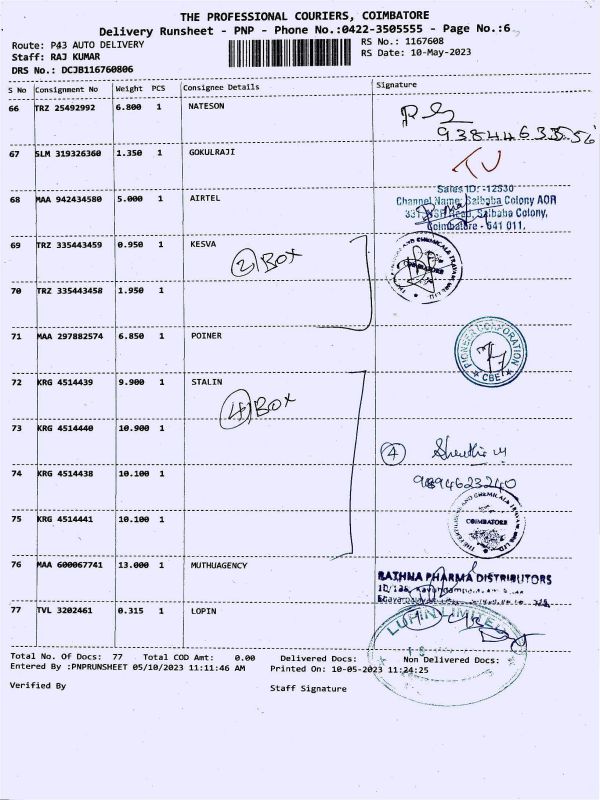 THE PROFESSIONAL COURIERS, COIMBATORE
Delivery Runsheet - PNP - Phone No.:0422-3505555 - Page No.:6
Route: P43 AUTO DELIVERY
Staff: RAJ KUMAR
DRS No.: DCJB116760806
RS No.: 1167608
RS Date: 10-May-2023
S No Consignment No Weight PCS Consignee Details Signature
66 TRZ 25492992 6.800 1 NATESON
67 SLM 319326360 1.350 1 GOKULRAJI
68 MAA 942434580 5.000 1 AIRTEL
Sales ID: -12530
Channel Name: Saibaba Colony AOR
331, NSR Road, Saibaba Colony,
Coimbatore - 641 011.
69 TRZ 335443459 0.950 1 KESVA
2 BOX
COIMBATORE
70 TRZ 335443458 1.950 1
71 MAA 297882574 6.850 1 POINER
PIONEER CORPORATION
CBE
72 KRG 4514439 9.900 1 STALIN
4 BOX
73 KRG 4514440 10.900 1
4
74 KRG 4514438 10.100 1
9894623240
75 KRG 4514441 10.100 1
COIMBATORE
76 MAA 600067741 13.000 1 MUTHUAGENCY
RATHNA PHARMA DISTRIBUTORS
77 TVL 3202461 0.315 1 LOPIN
LUPIN LIMITED
Total No. Of Docs: 77 Total COD Amt: 0.00 Delivered Docs: Non Delivered Docs:
Entered By :PNPRUNSHEET 05/10/2023 11:11:46 AM Printed On: 10-05-2023 11:24:25
Verified By Staff Signature